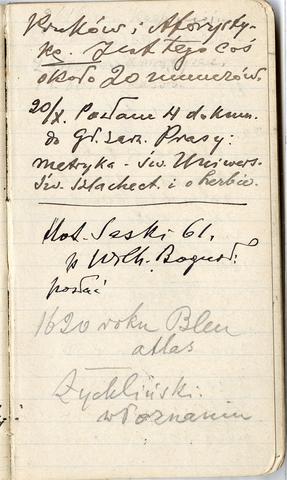 Kraków i Aforysty-
kę. Jest tego coś
około 20 numerów.
20/X. Posłam 4 dokum.
do Gł. Zarz. Prasy:
metryka - św. Uniwers.
Św. szlachect. i o herbie.
Hot. Saski 61,
p Wilh. Bogusł.
posłać
1620 roku Bleu
atlas
Żychliński
w Poznaniu